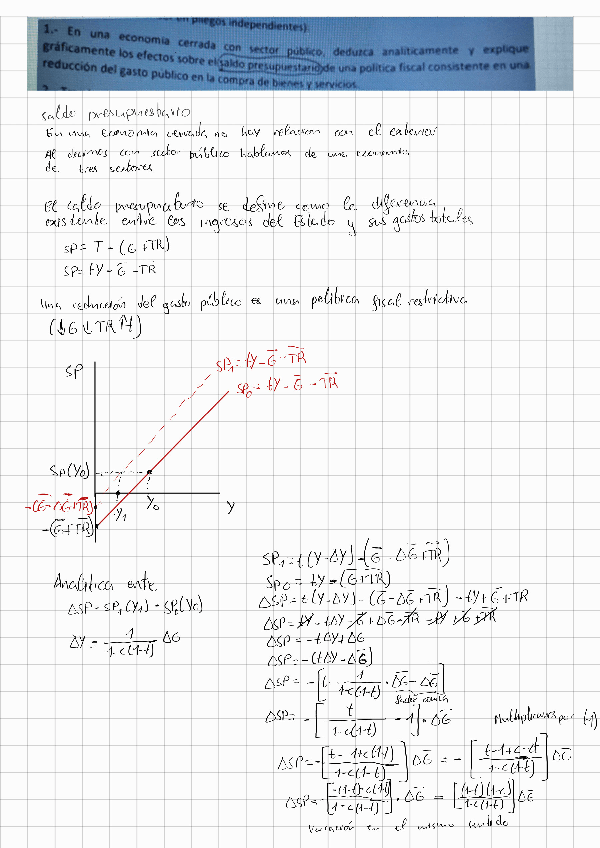 en pliegos independientes).
1.- En una economía cerrada con sector público, deduzca analíticamente y explique
gráficamente los efectos sobre el saldo presupuestario de una política fiscal consistente en una
reducción del gasto público en la compra de bienes y servicios.
saldo presupuestario
En una economía cerrada no hay relación con el exterior
Al decirnos con sector público hablamos de una economía
de tres sectores
El saldo presupuestario se define como la diferencia
existente entre los ingresos del Estado y sus gastos totales
SP = T - (G + TR)
SP = tY - G̅ - T̅R̅
Una reducción del gasto público es una política fiscal restrictiva
(↓G ↓TR ↑t)
SP
SP₁ = tY - G̅ - T̅R̅
SP₀ = tY - G̅ - T̅R̅
SP(Y₀)
-(G̅-ΔG̅+T̅R̅)
-(G̅+T̅R̅)
Y₁
Y₀
Y
Analíticamente
ΔSP = SP₁(Y₁) - SP₀(Y₀)
ΔY = 1/(1-c(1-t)) ΔG
SP₁ = t(Y-ΔY) - (G̅ - ΔG̅ + T̅R̅)
SP₀ = tY - (G̅+T̅R̅)
ΔSP = t(Y-ΔY) - (G̅-ΔG̅+T̅R̅) - tY + G̅ + TR
ΔSP = tY - tΔY - G̅ + ΔG̅ - T̅R̅ - tY + G̅ + T̅R̅
ΔSP = -tΔY + ΔG
ΔSP = -(tΔY - ΔG̅)
ΔSP = -[t · 1/(1-c(1-t)) · ΔG̅ - ΔG̅]
ΔSP = -[t/(1-c(1-t)) - 1] · ΔG̅
Multiplicamos por (-1)
ΔSP = -[(t-1+c(1-t))/(1-c(1-t))] ΔG̅ = -[(t-1+c-ct)/(1-c(1-t))] ΔG̅
ΔSP = -[(-(1-t)+c(1-t))/(1-c(1-t))] · ΔG̅ = [((1-t)(1-c))/(1-c(1-t))] ΔG̅
Variación en el mismo sentido